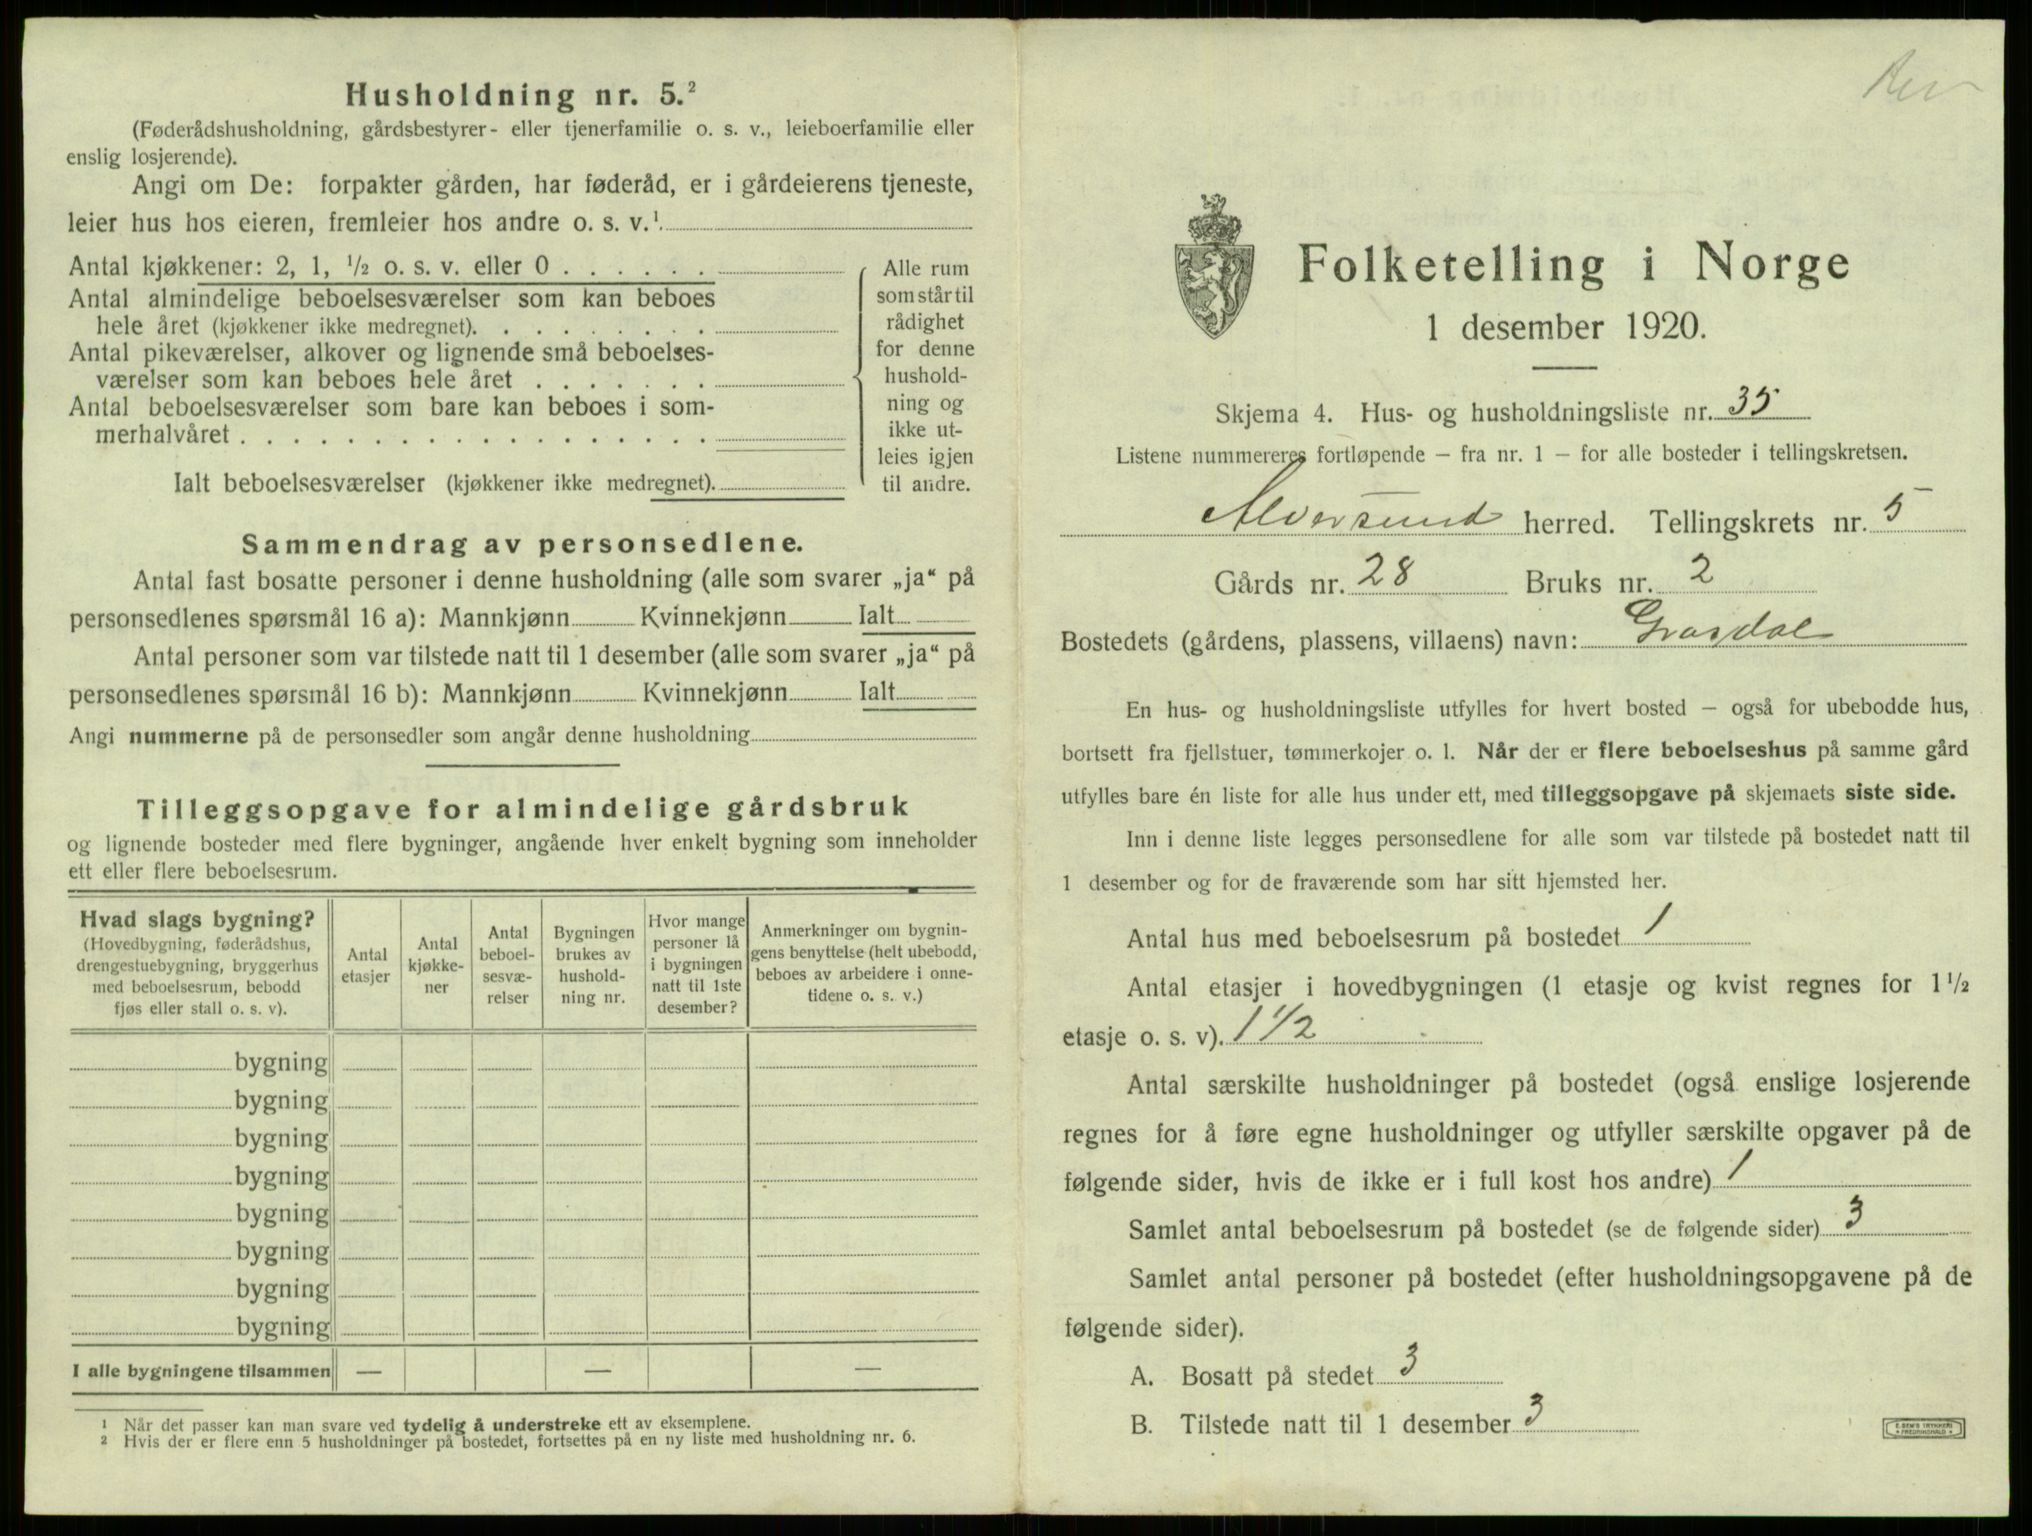 Husholdning nr. 5.²
(Føderådshusholdning, gårdsbestyrer- eller tjenerfamilie o. s. v., leieboerfamilie eller
enslig losjerende).
Angi om De: forpakter gården, har føderåd, er i gårdeierens tjeneste,
leier hus hos eieren, fremleier hos andre o. s. v.¹
Antal kjøkkener: 2, 1, ½ o. s. v. eller 0 . . . . . .
Antal almindelige beboelsesværelser som kan beboes
hele året (kjøkkener ikke medregnet). . . . . . . . .
Antal pikeværelser, alkover og lignende små beboelses-
værelser som kan beboes hele året . . . . . . .
Antal beboelsesværelser som bare kan beboes i som-
merhalvåret . . . . . . . . . . . . . . . . . .
Ialt beboelsesværelser (kjøkkener ikke medregnet).
Alle rum
som står til
rådighet
for denne
hushold-
ning og
ikke ut-
leies igjen
til andre.
Sammendrag av personsedlene.
Antal fast bosatte personer i denne husholdning (alle som svarer „ja“ på
personsedlenes spørsmål 16 a): Mannkjønn Kvinnekjønn Ialt
Antal personer som var tilstede natt til 1 desember (alle som svarer „ja“ på
personsedlenes spørsmål 16 b): Mannkjønn Kvinnekjønn Ialt
Angi nummerne på de personsedler som angår denne husholdning
Tilleggsopgave for almindelige gårdsbruk
og lignende bosteder med flere bygninger, angående hver enkelt bygning som inneholder
ett eller flere beboelsesrum.
Hvad slags bygning?
(Hovedbygning, føderådshus,
drengestuebygning, bryggerhus
med beboelsesrum, bebodd
fjøs eller stall o. s. v).
Antal
etasjer
Antal
kjøkke-
ner
Antal
beboel-
sesvæ-
relser
Bygningen
brukes av
hushold-
ning nr.
Hvor mange
personer lå
i bygningen
natt til 1ste
desember?
Anmerkninger om bygnin-
gens benyttelse (helt ubebodd,
beboes av arbeidere i onne-
tidene o. s. v.)
bygning
bygning
bygning
bygning
bygning
bygning
bygning
bygning
I alle bygningene tilsammen — — —
¹ Når det passer kan man svare ved tydelig å understreke ett av eksemplene.
² Hvis der er flere enn 5 husholdninger på bostedet, fortsettes på en ny liste med husholdning nr. 6.
Folketelling i Norge
1 desember 1920.
Skjema 4. Hus- og husholdningsliste nr. 35
Listene nummereres fortløpende – fra nr. 1 – for alle bosteder i tellingskretsen.
Alversund herred. Tellingskrets nr. 5
Gårds nr. 28 Bruks nr. 2
Bostedets (gårdens, plassens, villaens) navn: Grasdal
En hus- og husholdningsliste utfylles for hvert bosted – også for ubebodde hus,
bortsett fra fjellstuer, tømmerkojer o. l. Når der er flere beboelseshus på samme gård
utfylles bare én liste for alle hus under ett, med tilleggsopgave på skjemaets siste side.
Inn i denne liste legges personsedlene for alle som var tilstede på bostedet natt til
1 desember og for de fraværende som har sitt hjemsted her.
Antal hus med beboelsesrum på bostedet 1
Antal etasjer i hovedbygningen (1 etasje og kvist regnes for 1 ½
etasje o. s. v). 1 ½
Antal særskilte husholdninger på bostedet (også enslige losjerende
regnes for å føre egne husholdninger og utfyller særskilte opgaver på de
følgende sider, hvis de ikke er i full kost hos andre) 1
Samlet antal beboelsesrum på bostedet (se de følgende sider) 3
Samlet antal personer på bostedet (efter husholdningsopgavene på de
følgende sider).
A. Bosatt på stedet 3
B. Tilstede natt til 1 desember 3
E. SEM'S TRYKKERI
FREDRIKSHALD